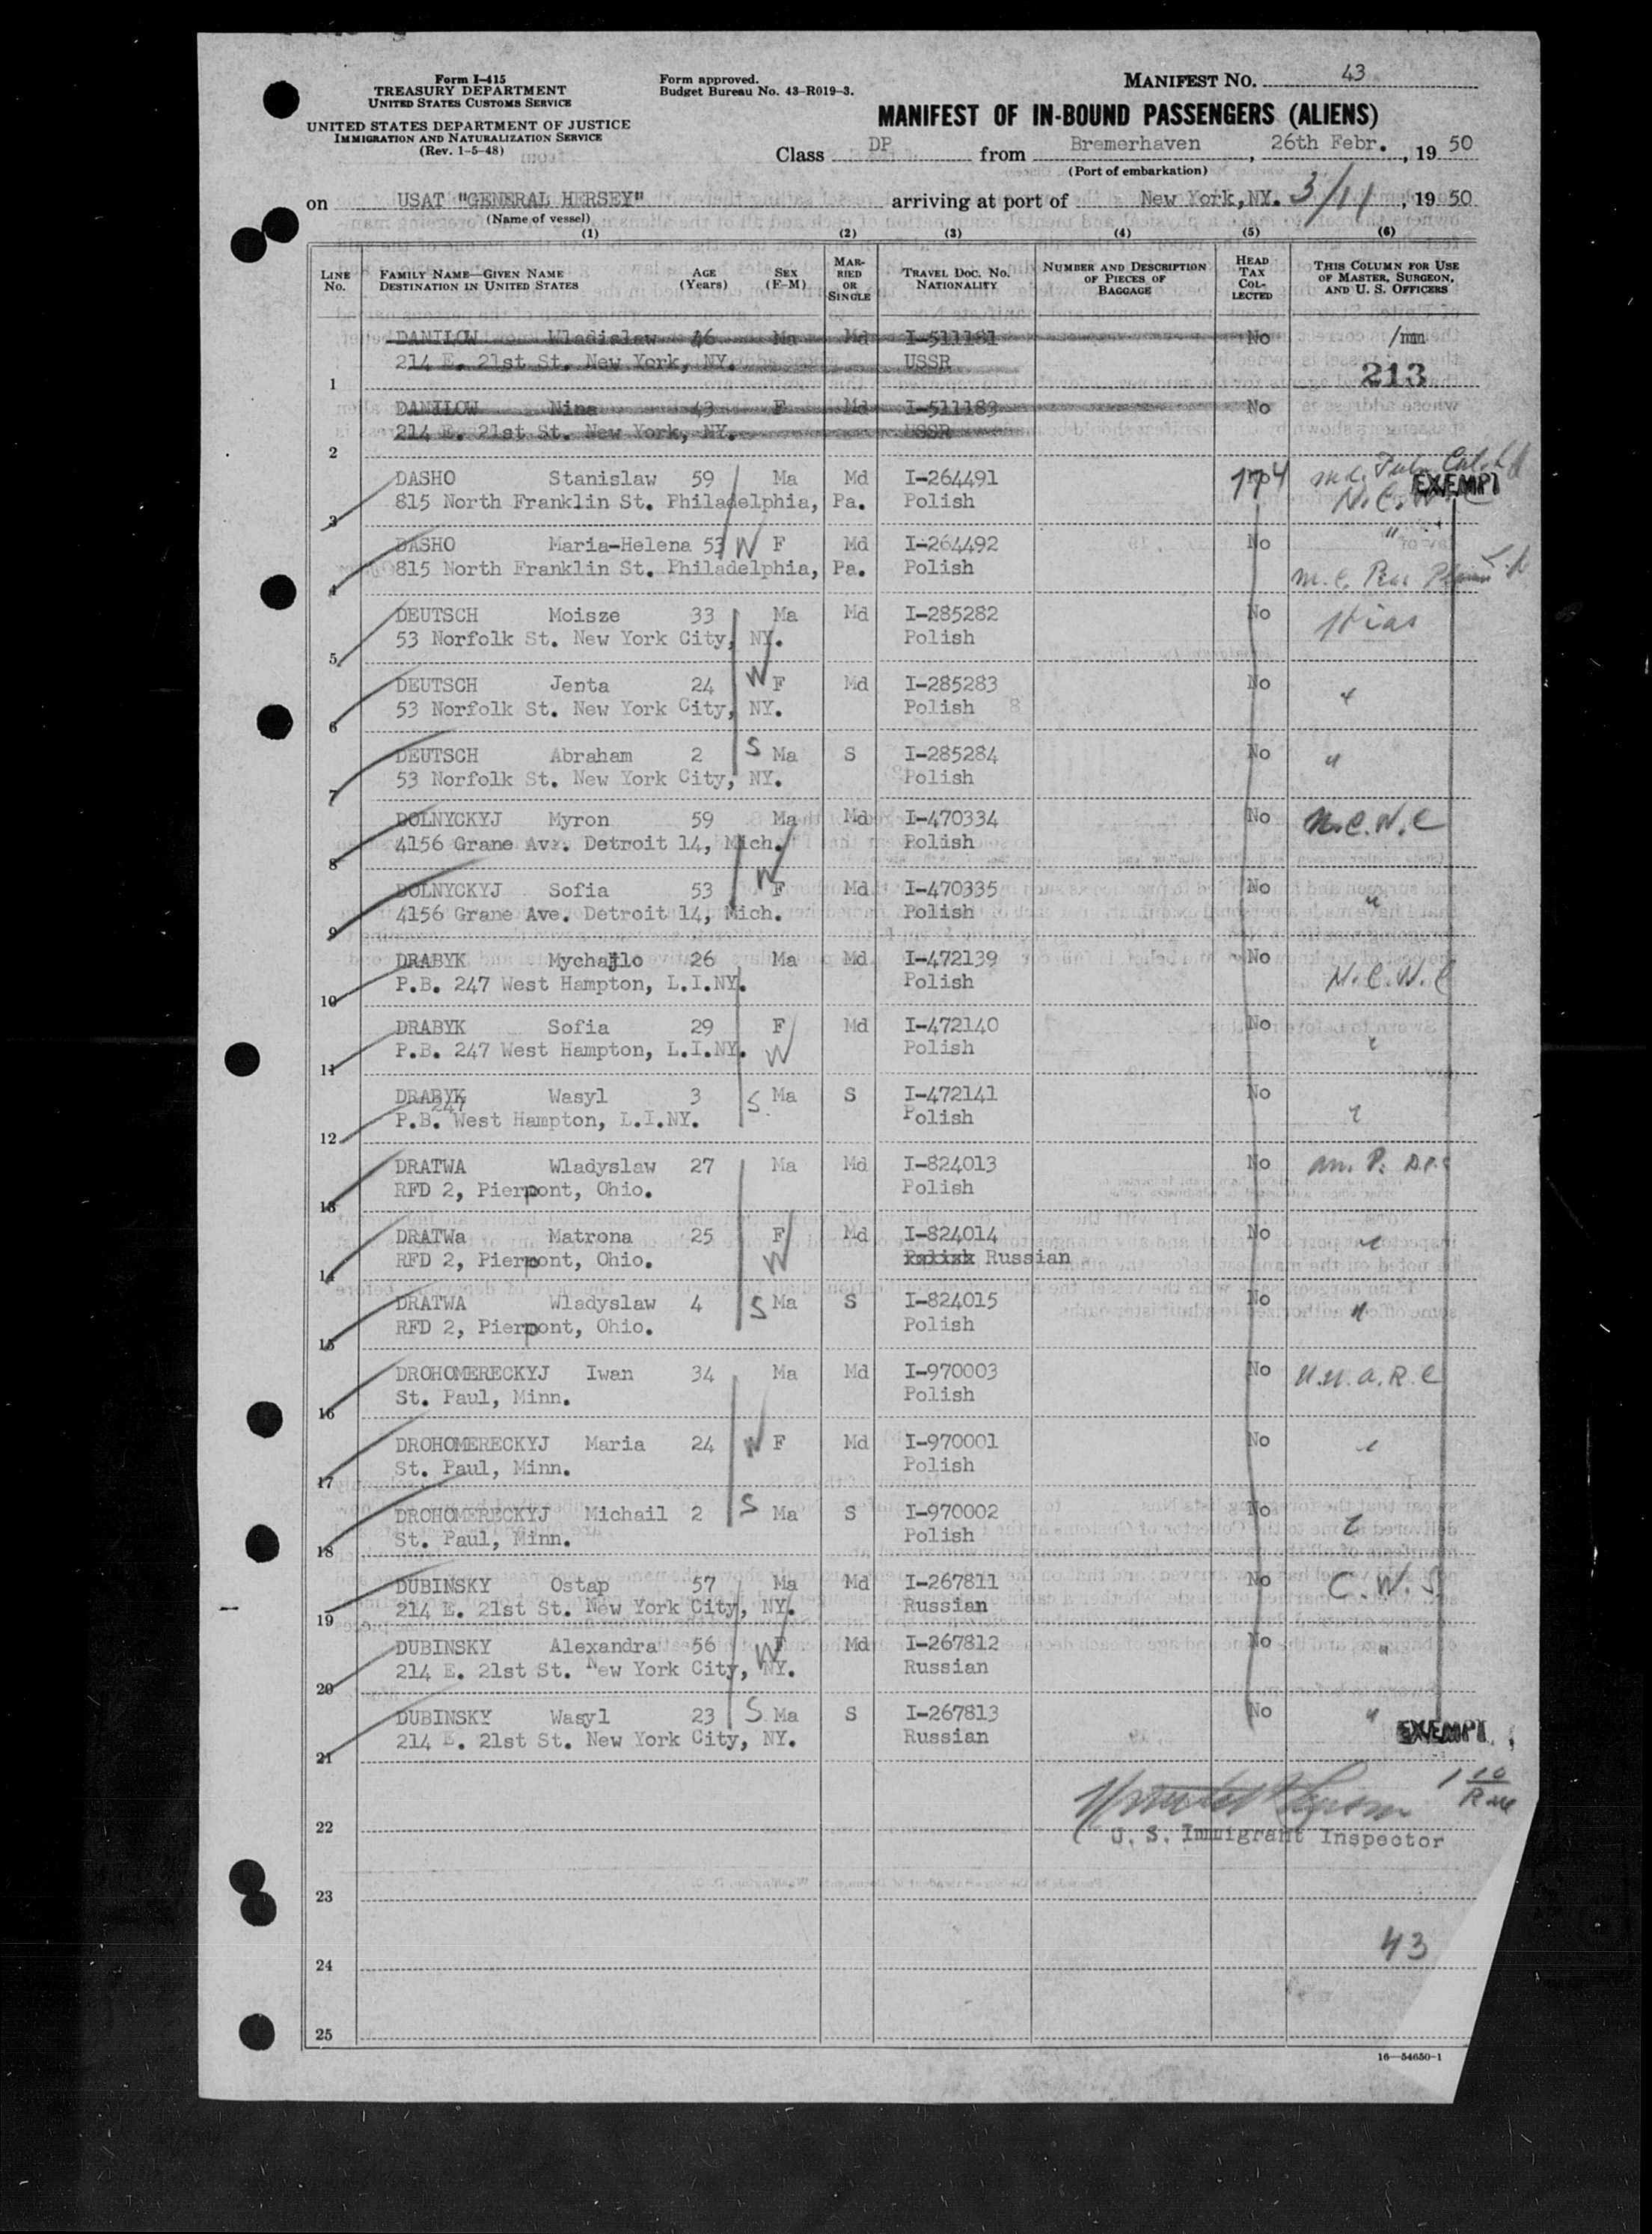 Form I-415
TREASURY DEPARTMENT
UNITED STATES CUSTOMS SERVICE
UNITED STATES DEPARTMENT OF JUSTICE
IMMIGRATION AND NATURALIZATION SERVICE
(Rev. 1-5-48)
Form approved.
Budget Bureau No. 43-R019-3.
MANIFEST NO. 43
MANIFEST OF IN-BOUND PASSENGERS (ALIENS)
Class DP from Bremerhaven, 26th Febr., 19 50
(Port of embarkation)
on USAT "GENERAL HERSEY" arriving at port of New York, NY. 3/11, 19 50
(Name of vessel)
(1) (2) (3) (4) (5) (6)
LINE No. FAMILY NAME—GIVEN NAME DESTINATION IN UNITED STATES AGE (Years) SEX (F-M) MARRIED OR SINGLE TRAVEL DOC. NO. NATIONALITY NUMBER AND DESCRIPTION OF PIECES OF BAGGAGE HEAD TAX COLLECTED THIS COLUMN FOR USE OF MASTER, SURGEON, AND U. S. OFFICERS
DANILOW Wladislaw 46 Ma Md I-511181 No /mm
214 E. 21st St. New York, NY. USSR
1 213
DANILOW Nina 43 F Md I-511183 No
214 E. 21st St. New York, NY. USSR
2
DASHO Stanislaw 59 Ma Md I-264491
815 North Franklin St. Philadelphia, Pa. Polish N.C.W.C EXEMPT
3
DASHO Maria-Helena 53 W F Md I-264492 No "
815 North Franklin St. Philadelphia, Pa. Polish
4
DEUTSCH Moisze 33 Ma Md I-285282 No Hias
53 Norfolk St. New York City, NY. Polish
5
DEUTSCH Jenta 24 W F Md I-285283 No "
53 Norfolk St. New York City, NY. Polish
6
DEUTSCH Abraham 2 S Ma S I-285284 No "
53 Norfolk St. New York City, NY. Polish
7
DOLNYCKYJ Myron 59 Ma Md I-470334 No N.C.W.C
4156 Grane Av. Detroit 14, Mich. Polish
8
DOLNYCKYJ Sofia 53 W F Md I-470335 No "
4156 Grane Ave. Detroit 14, Mich. Polish
9
DRABYK Mychajlo 26 Ma Md I-472139 No N.C.W.C
P.B. 247 West Hampton, L.I.NY. Polish
10
DRABYK Sofia 29 F Md I-472140 No "
P.B. 247 West Hampton, L.I.NY. W Polish
11
DRABYK Wasyl 3 S Ma S I-472141 No "
P.B. 247 West Hampton, L.I.NY. Polish
12
DRATWA Wladyslaw 27 Ma Md I-824013 No
RFD 2, Pierpont, Ohio. Polish
13
DRATWa Matrona 25 F Md I-824014 No "
RFD 2, Pierpont, Ohio. W Polish Russian
14
DRATWA Wladyslaw 4 S Ma S I-824015 No "
RFD 2, Pierpont, Ohio. Polish
15
DROHOMERECKYJ Iwan 34 Ma Md I-970003 No U.U.A.R.C
St. Paul, Minn. Polish
16
DROHOMERECKYJ Maria 24 W F Md I-970001 No "
St. Paul, Minn. Polish
17
DROHOMERECKYJ Michail 2 S Ma S I-970002 No "
St. Paul, Minn. Polish
18
DUBINSKY Ostap 57 Ma Md I-267811 No C.W.S
214 E. 21st St. New York City, NY. Russian
19
DUBINSKY Alexandra 56 W F Md I-267812 No "
214 E. 21st St. New York City, NY. Russian
20
DUBINSKY Wasyl 23 S Ma S I-267813 No "
214 E. 21st St. New York City, NY. Russian EXEMPT
21
22 U. S. Immigrant Inspector
23
43
24
25
16—54650-1